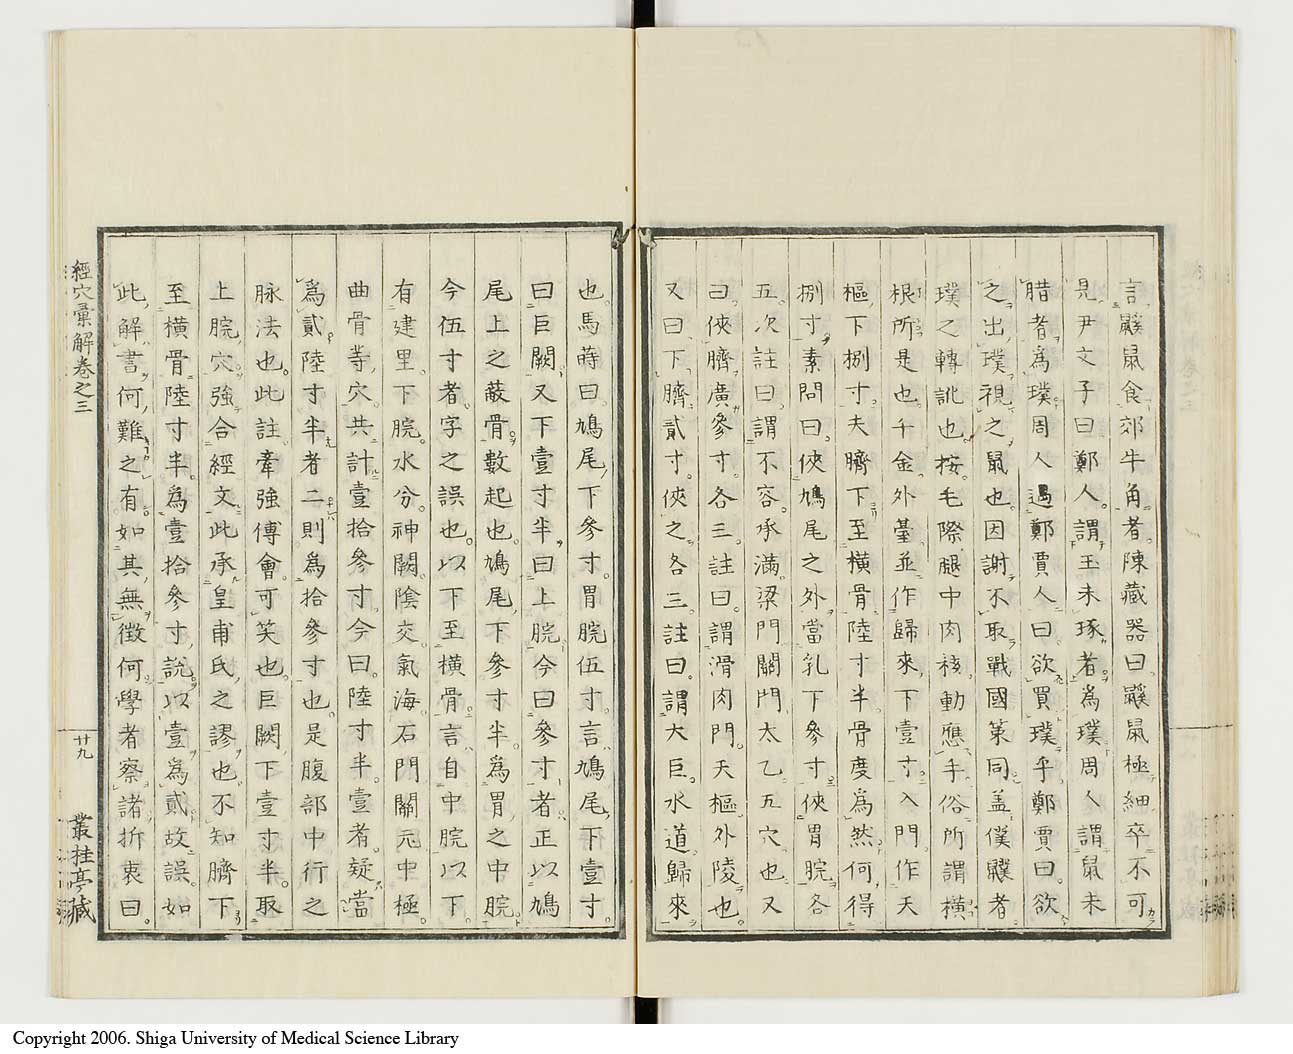 言鼷鼠食郊牛角者陳藏器曰鼷鼠極細卒不可
見尹文子曰鄭人謂玉未琢者為璞周人謂鼠未
腊者為璞周人遇鄭賈人曰欲買璞乎鄭賈曰欲
之出璞視之鼠也因謝不取戰國策同盖僕鼷者
璞之轉訛也按毛際腿中肉核動應手俗所謂橫
根所是也千金外臺並作歸來下壹寸入門作天
樞下捌寸夫臍下至橫骨陸寸半骨度為然何得
捌寸素問曰俠鳩尾之外當乳下參寸俠胃脘各
五次註曰謂不容承滿梁門關門太乙五穴也又
曰俠臍廣參寸各三註曰謂滑肉門天樞外陵也
又曰下臍貳寸俠之各三註曰謂大巨水道歸來
也馬蒔曰鳩尾下參寸胃脘伍寸言鳩尾下壹寸
曰巨闕又下壹寸半曰上脘今曰參寸者正以鳩
尾上之蔽骨數起也鳩尾下參寸半為胃之中脘
今伍寸者字之誤也以下至橫骨言自中脘以下
有建里下脘水分神闕陰交氣海石門關元中極
曲骨等穴共計壹拾參寸今曰陸寸半壹者疑當
為貳陸寸半者二則為拾參寸也是腹部中行之
脉法也此註牽強傅會可笑也巨闕下壹寸半取
上脘穴強合經文此承皇甫氏之謬也不知臍下
至橫骨陸寸半為壹拾參寸說以壹為貳故誤如
此解書何難之有如其無徵何學者察諸折衷曰
經穴彙解卷之三
廿九
叢桂亭藏
Copyright 2006. Shiga University of Medical Science Library